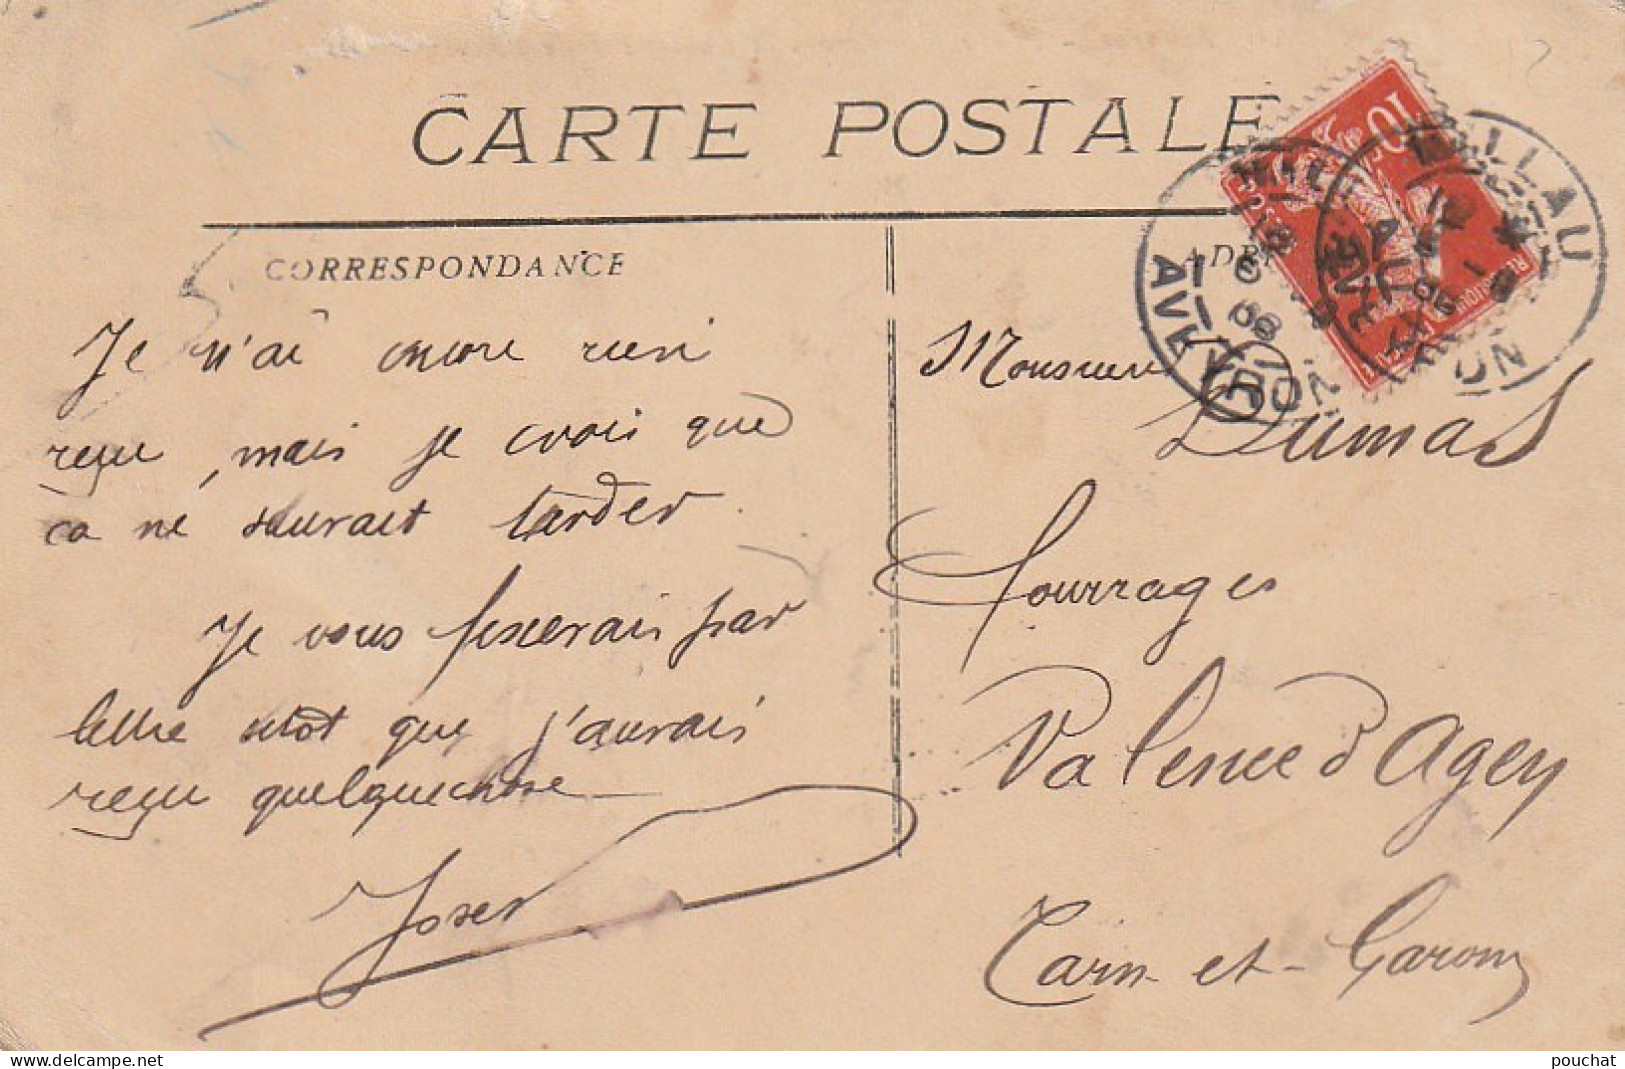 CARTE POSTALE
CORRESPONDANCE
Je n'ai encore rien
reçu, mais je crois que
ça ne saurait tarder.
Je vous fixerais par
lettre sitôt que j'aurais
reçu quelquechose
MILLAU
AVEYRON
10
Monsieur
Dumas
fourrages
Valence d'Agen
Tarn-et-Garonne
www.delcampe.net
pouchat